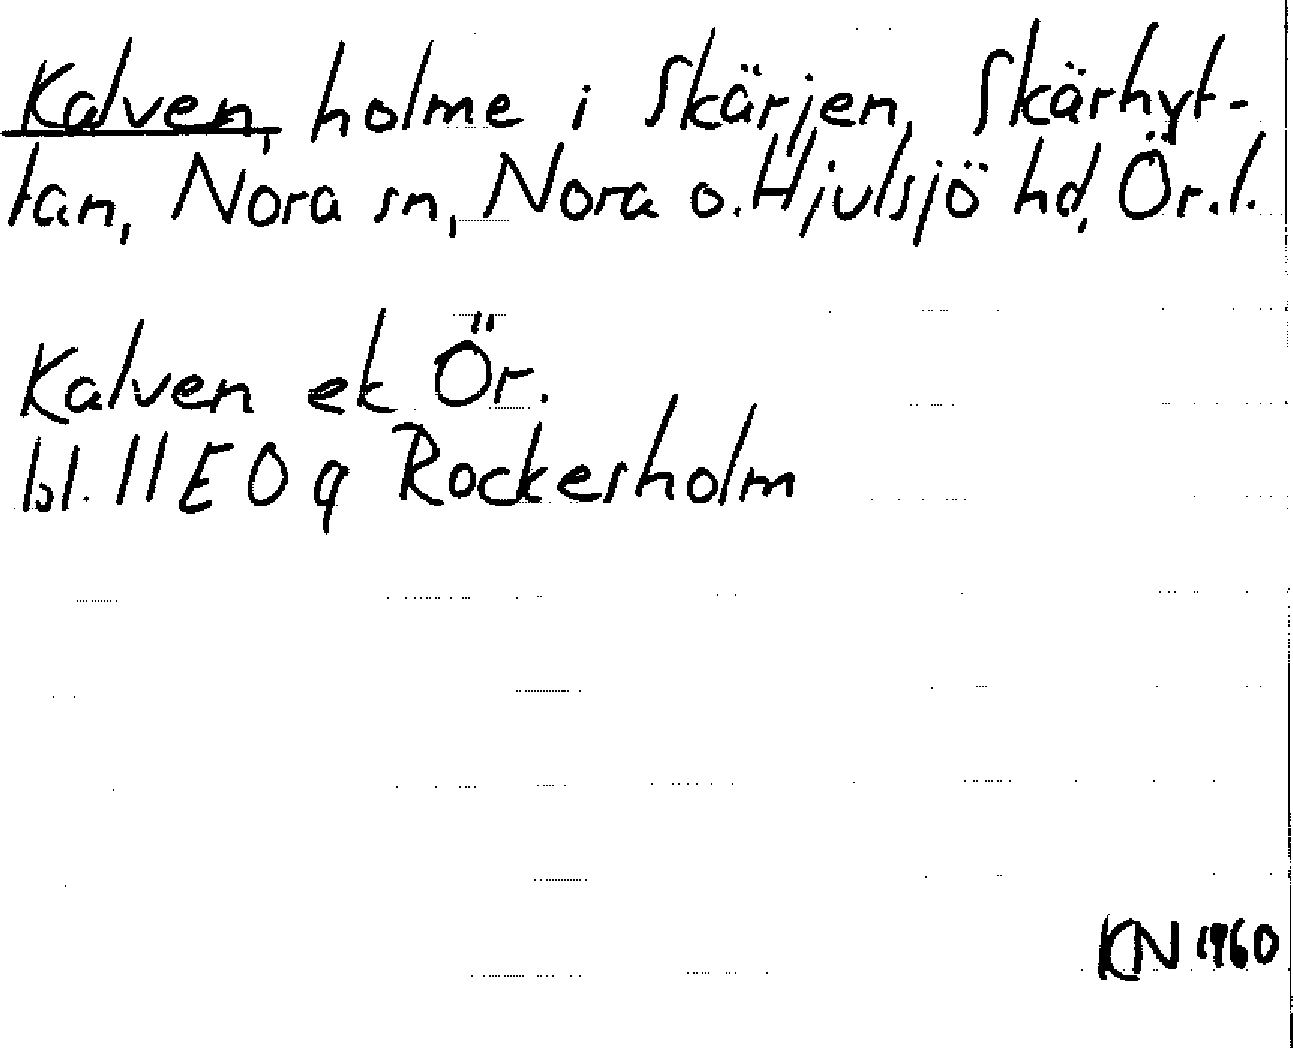 Kalven, holme i Skärjen, Skärhyt-
tan, Nora sn, Nora o. Hjulsjö hd, Ör. l.
Kalven ek Ör.
bl. 11 E 0 q Rockesholm
KN 1960